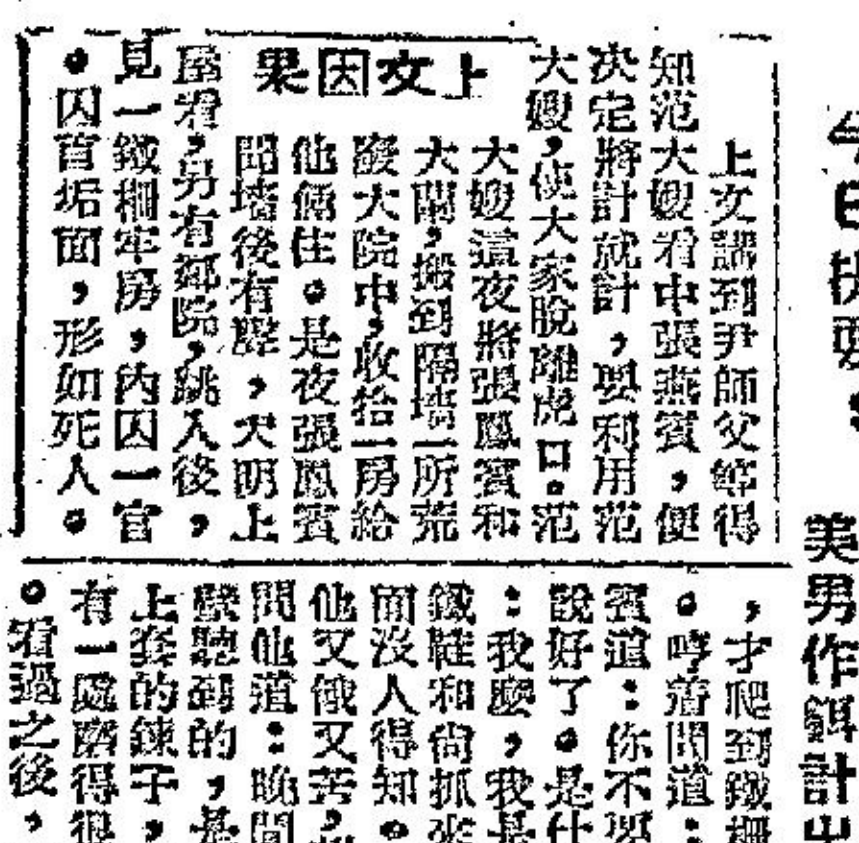 今日提要：
美男作餌計出
上文因果
上文講到尹師父等得
知范大嫂看中張燕賓，便
決定將計就計，要利用范
大嫂，使大家脫離虎口。范
大嫂這夜將張鳳賓和
大鬧，搬到隔墻一所荒
廢大院中，收拾一房給
他俩住。是夜張鳳賓
聞墻後有聲，天明上
屋看，另有鄰院，跳入後，
見一鐵柵牢房，內囚一官
。囚首垢面，形如死人。
，才爬到鐵柵
。哼着問道：
賓道：你不要
說好了。是什
：我麽，我是
鐵鞋和尙抓來
而沒人得知。
他又餓又苦，
問他道：晚間
聽到的，是
上套的鍊子，
有一處磨得很
。看過之後，